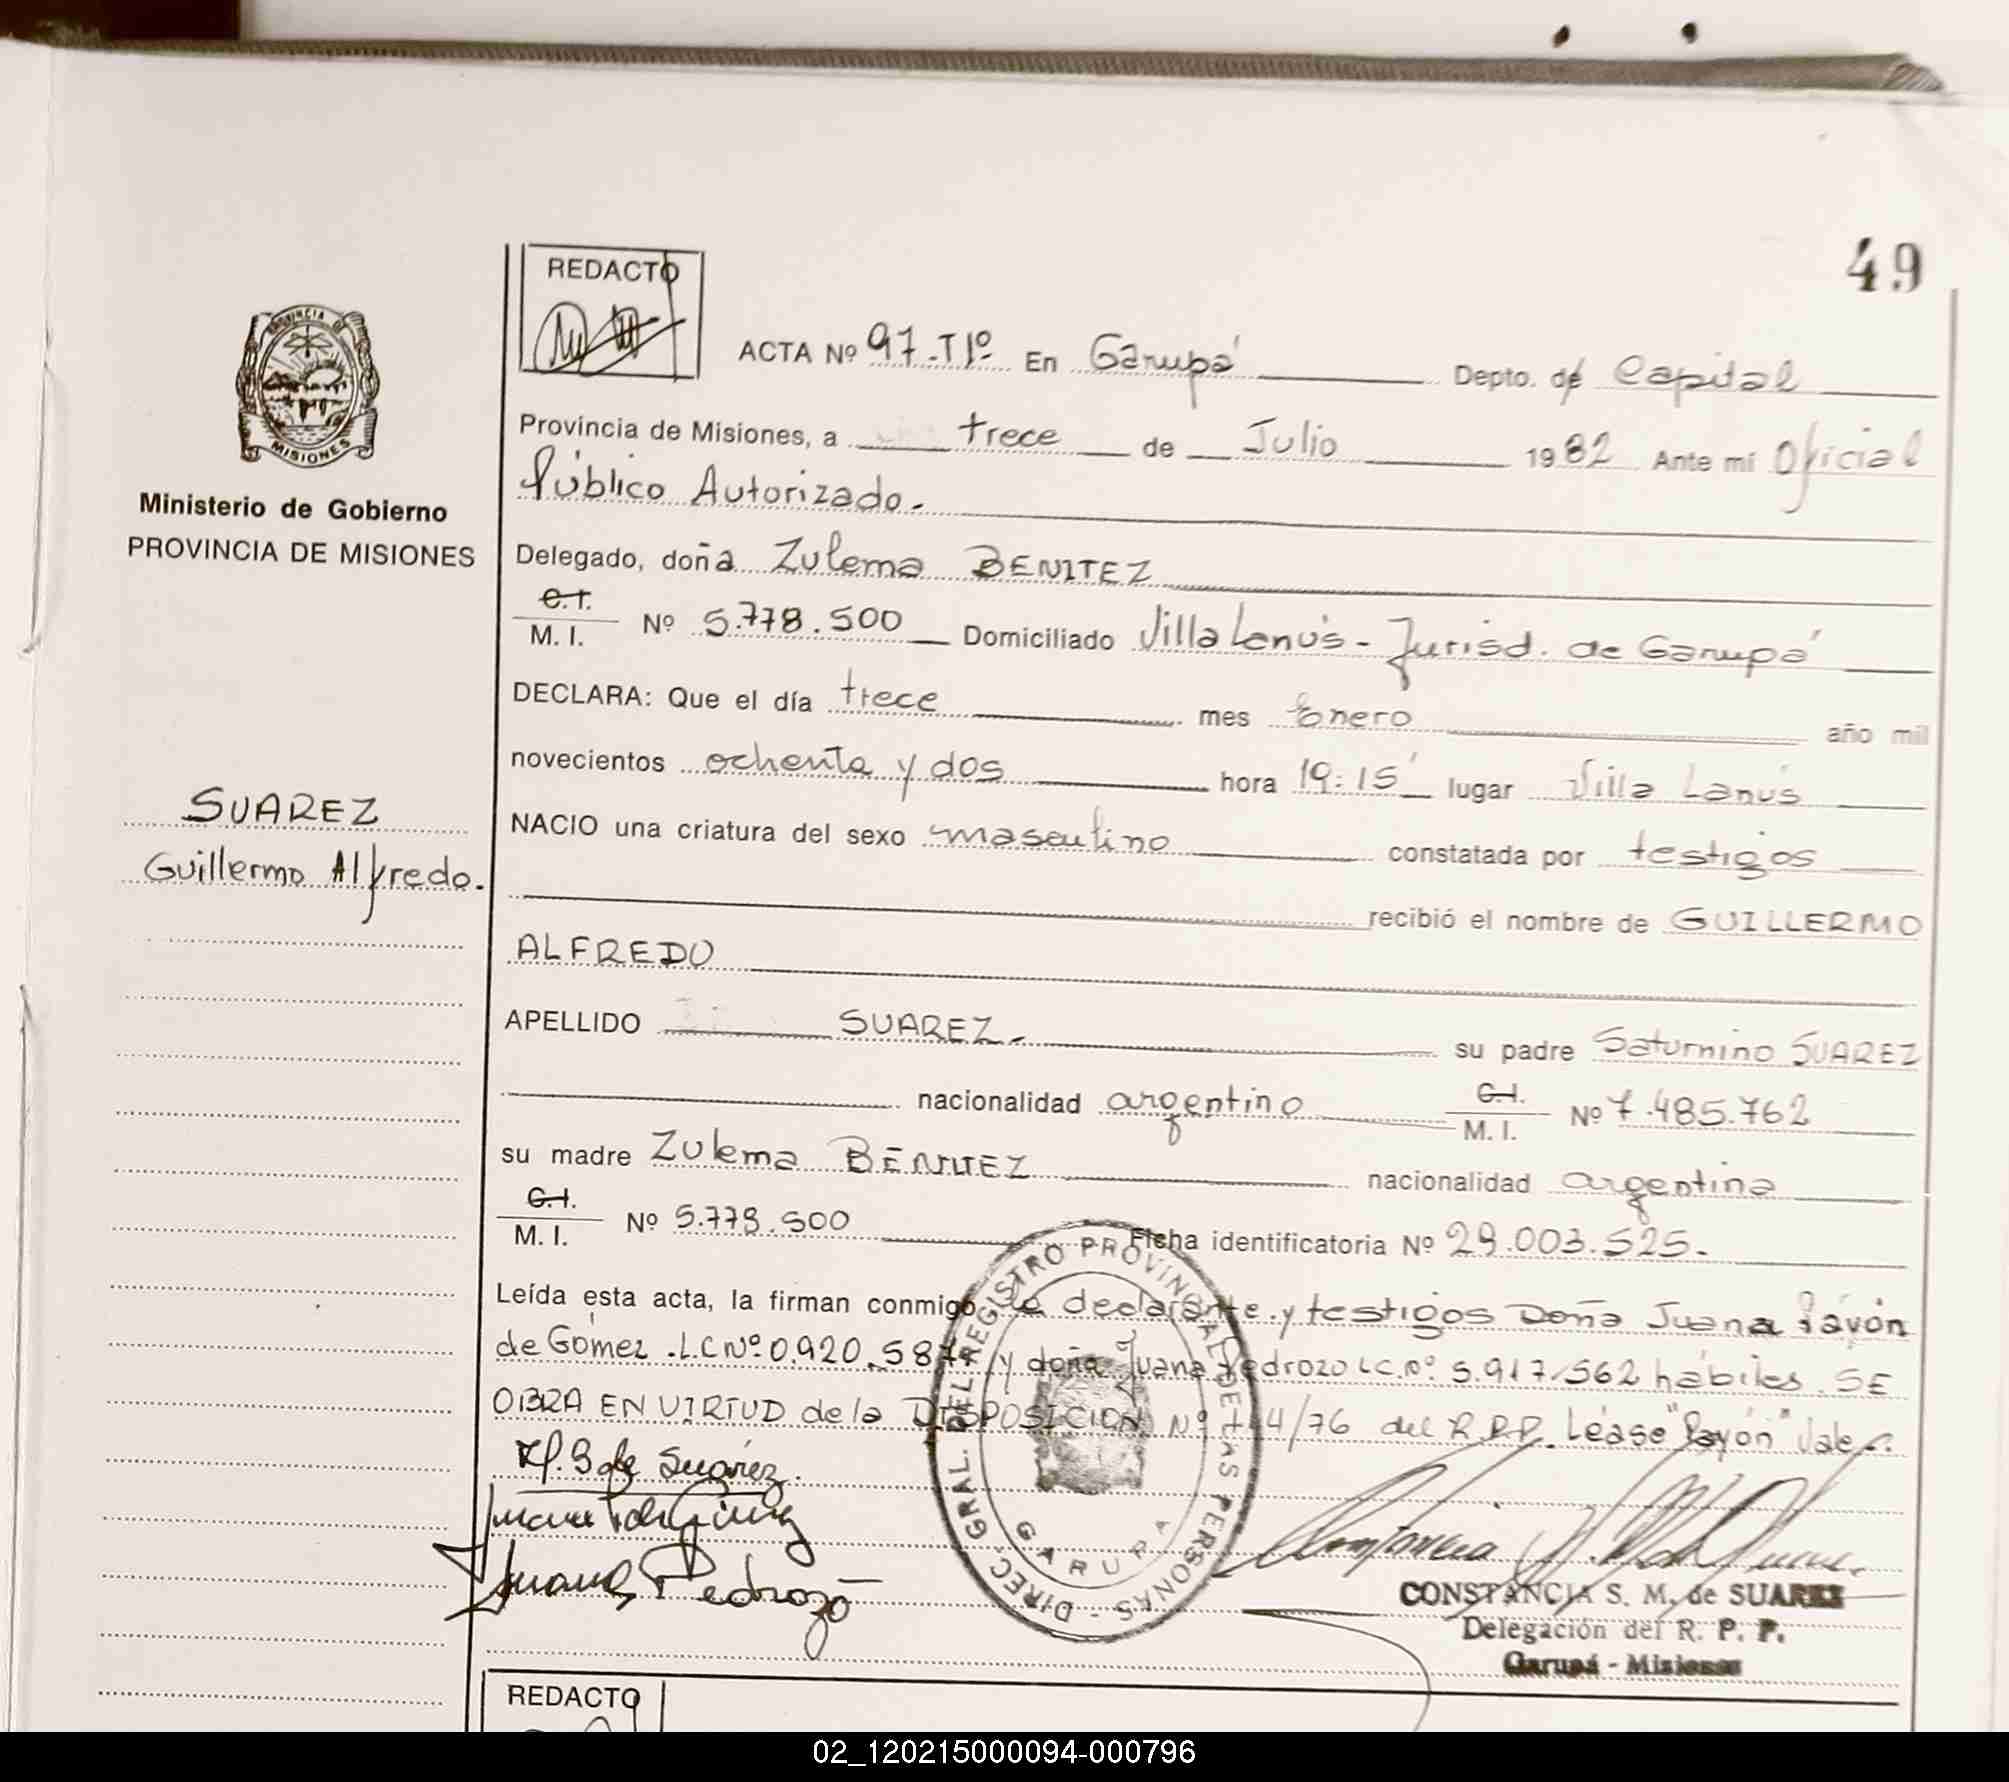 49
REDACTO
ACTA Nº 97-Tº1º En Garupá Depto. de Capital
Provincia de Misiones, a trece de Julio 1982 Ante mí Oficial
Público Autorizado.
PROVINCIA DE
MISIONES
Ministerio de Gobierno
PROVINCIA DE MISIONES
Delegado, doña Zulema BENITEZ
C.I.
M. I. Nº 5.778.500 Domiciliado Villa Lanús - Jurisd. de Garupá
DECLARA: Que el día trece mes Enero año mil
novecientos ochenta y dos hora 19:15' lugar Villa Lanús
SUAREZ
Guillermo Alfredo.
NACIO una criatura del sexo masculino constatada por testigos
recibió el nombre de GUILLERMO
ALFREDO
APELLIDO SUAREZ. su padre Saturnino SUAREZ
nacionalidad argentino C.I. M. I. Nº 7.485.762
su madre Zulema BENITEZ nacionalidad argentina
C.I.
M. I. Nº 5.778.500 Ficha identificatoria Nº 29.003.525.
Leída esta acta, la firman conmigo la declarante y testigos Doña Juana Pavón
de Gómez L.C Nº 0.920.587 y doña Juana Pedrozo L.C. Nº 5.917.562 hábiles. SE
OBRA EN VIRTUD de la DISPOSICION Nº 144/76 del R.P.P. Léase "Payón" Vale.
Z. B de Suárez.
Juana Pedrozo
DIREC. GRAL. DEL REGISTRO PROVINCIAL DE LAS PERSONAS
GARUPA
CONSTANCIA S. M. de SUAREZ
Delegación del R. P. P.
Garupá - Misiones
REDACTO
02_120215000094-000796